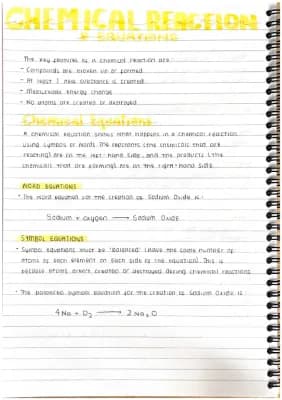 CHEMICAL REACTION
& EQUATIONS
The key features of a chemical reaction are:
- Compounds are broken up or formed
- At least 1 new substance is created
- Measurable energy change
- No atoms are created or destroyed
Chemical Equations
A chemical equation shows what happens in a chemical reaction
using symbols or words. The reactants (the chemicals that are
reacting) are on the left-hand side, and the products (the
chemicals that are forming) are on the right-hand side.
WORD EQUATIONS
- The word equation for the creation of Sodium Oxide is:
Sodium + oxygen ⟶ Sodium Oxide
SYMBOL EQUATIONS
- Symbol equations must be 'balanced' (have the same number of
atoms of each element on each side of the equation). This is
because atoms aren't created or destroyed during chemical reactions
- The balanced symbol equation for the creation of Sodium Oxide is:
4Na + O₂ ⟶ 2Na₂O